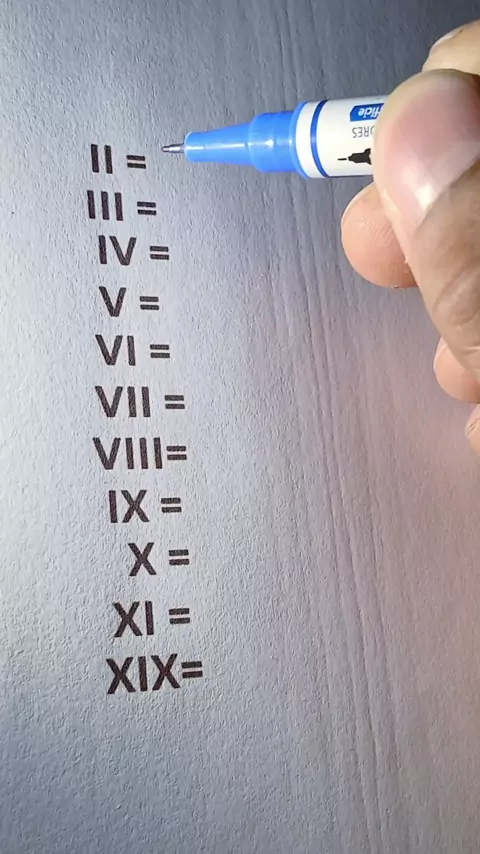 II =
III =
IV =
V =
VI =
VII =
VIII=
IX =
X =
XI =
XIX=